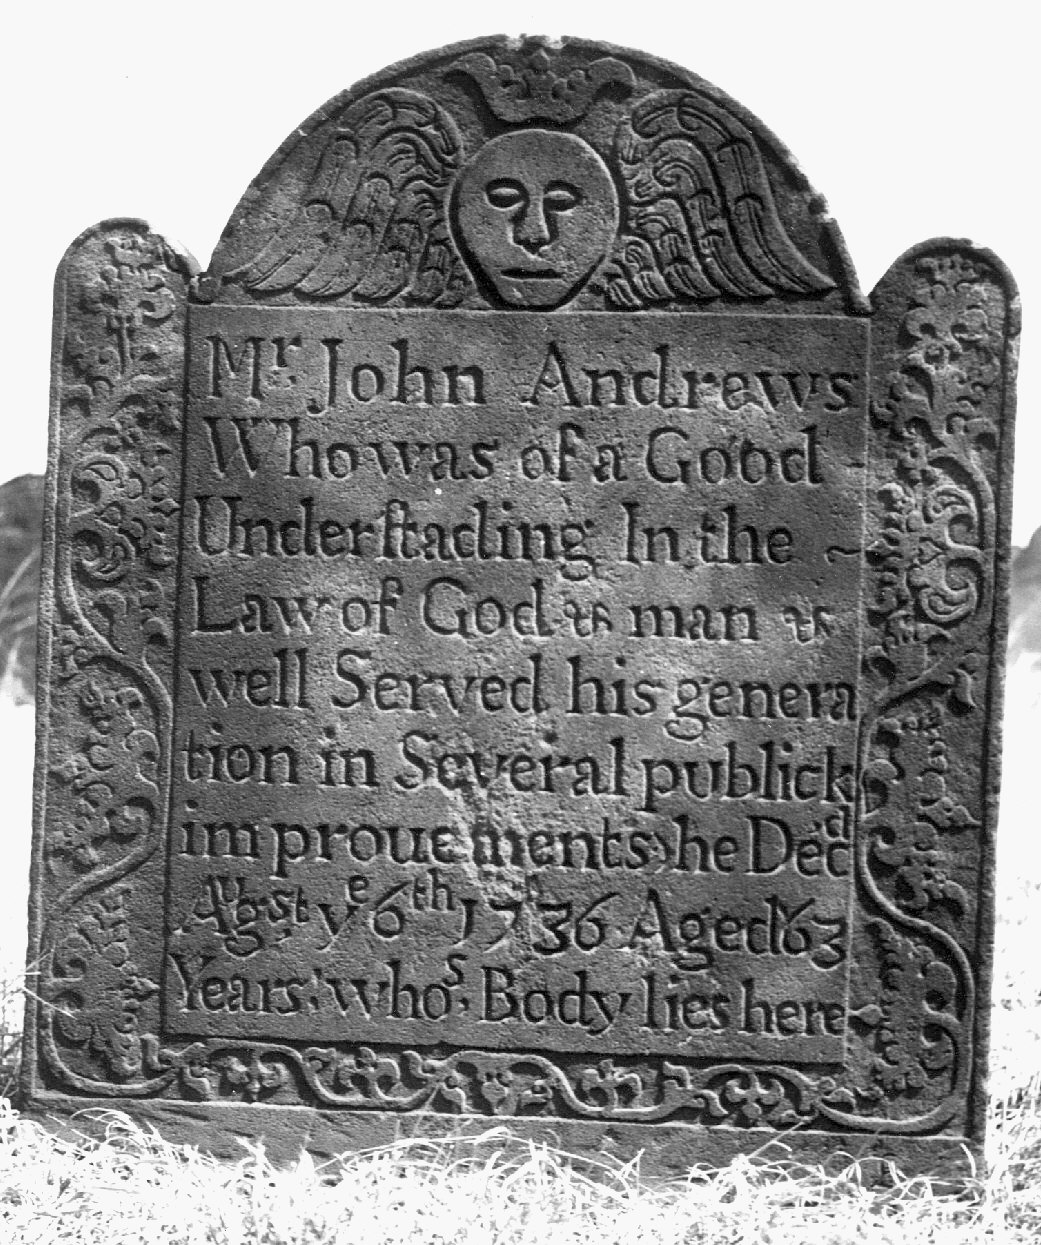 Mr. John Andrews
Who was of a Good
Underſtading In the ~
Law of God & man &
well Served his genera
tion in Several publick
improuements, he Decd
Augst ye 6th 1736 Aged 63
Years, whos, Body lies here